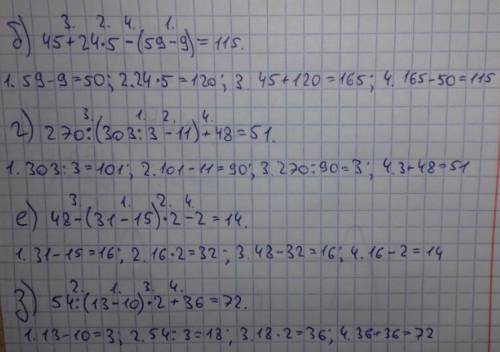 3. 2. 4. 1.
б) 45+24·5-(59-9)=115.
1. 59-9=50; 2. 24·5=120; 3. 45+120=165; 4. 165-50=115
3. 1. 2. 4.
г) 270:(303:3-11)+48=51.
1. 303:3=101; 2. 101-11=90; 3. 270:90=3; 4. 3+48=51
3. 1. 2. 4.
е) 48-(31-15)·2-2=14.
1. 31-15=16; 2. 16·2=32; 3. 48-32=16; 4. 16-2=14
2. 1. 3. 4.
з) 54:(13-10)·2+36=72.
1. 13-10=3; 2. 54:3=18; 3. 18·2=36; 4. 36+36=72